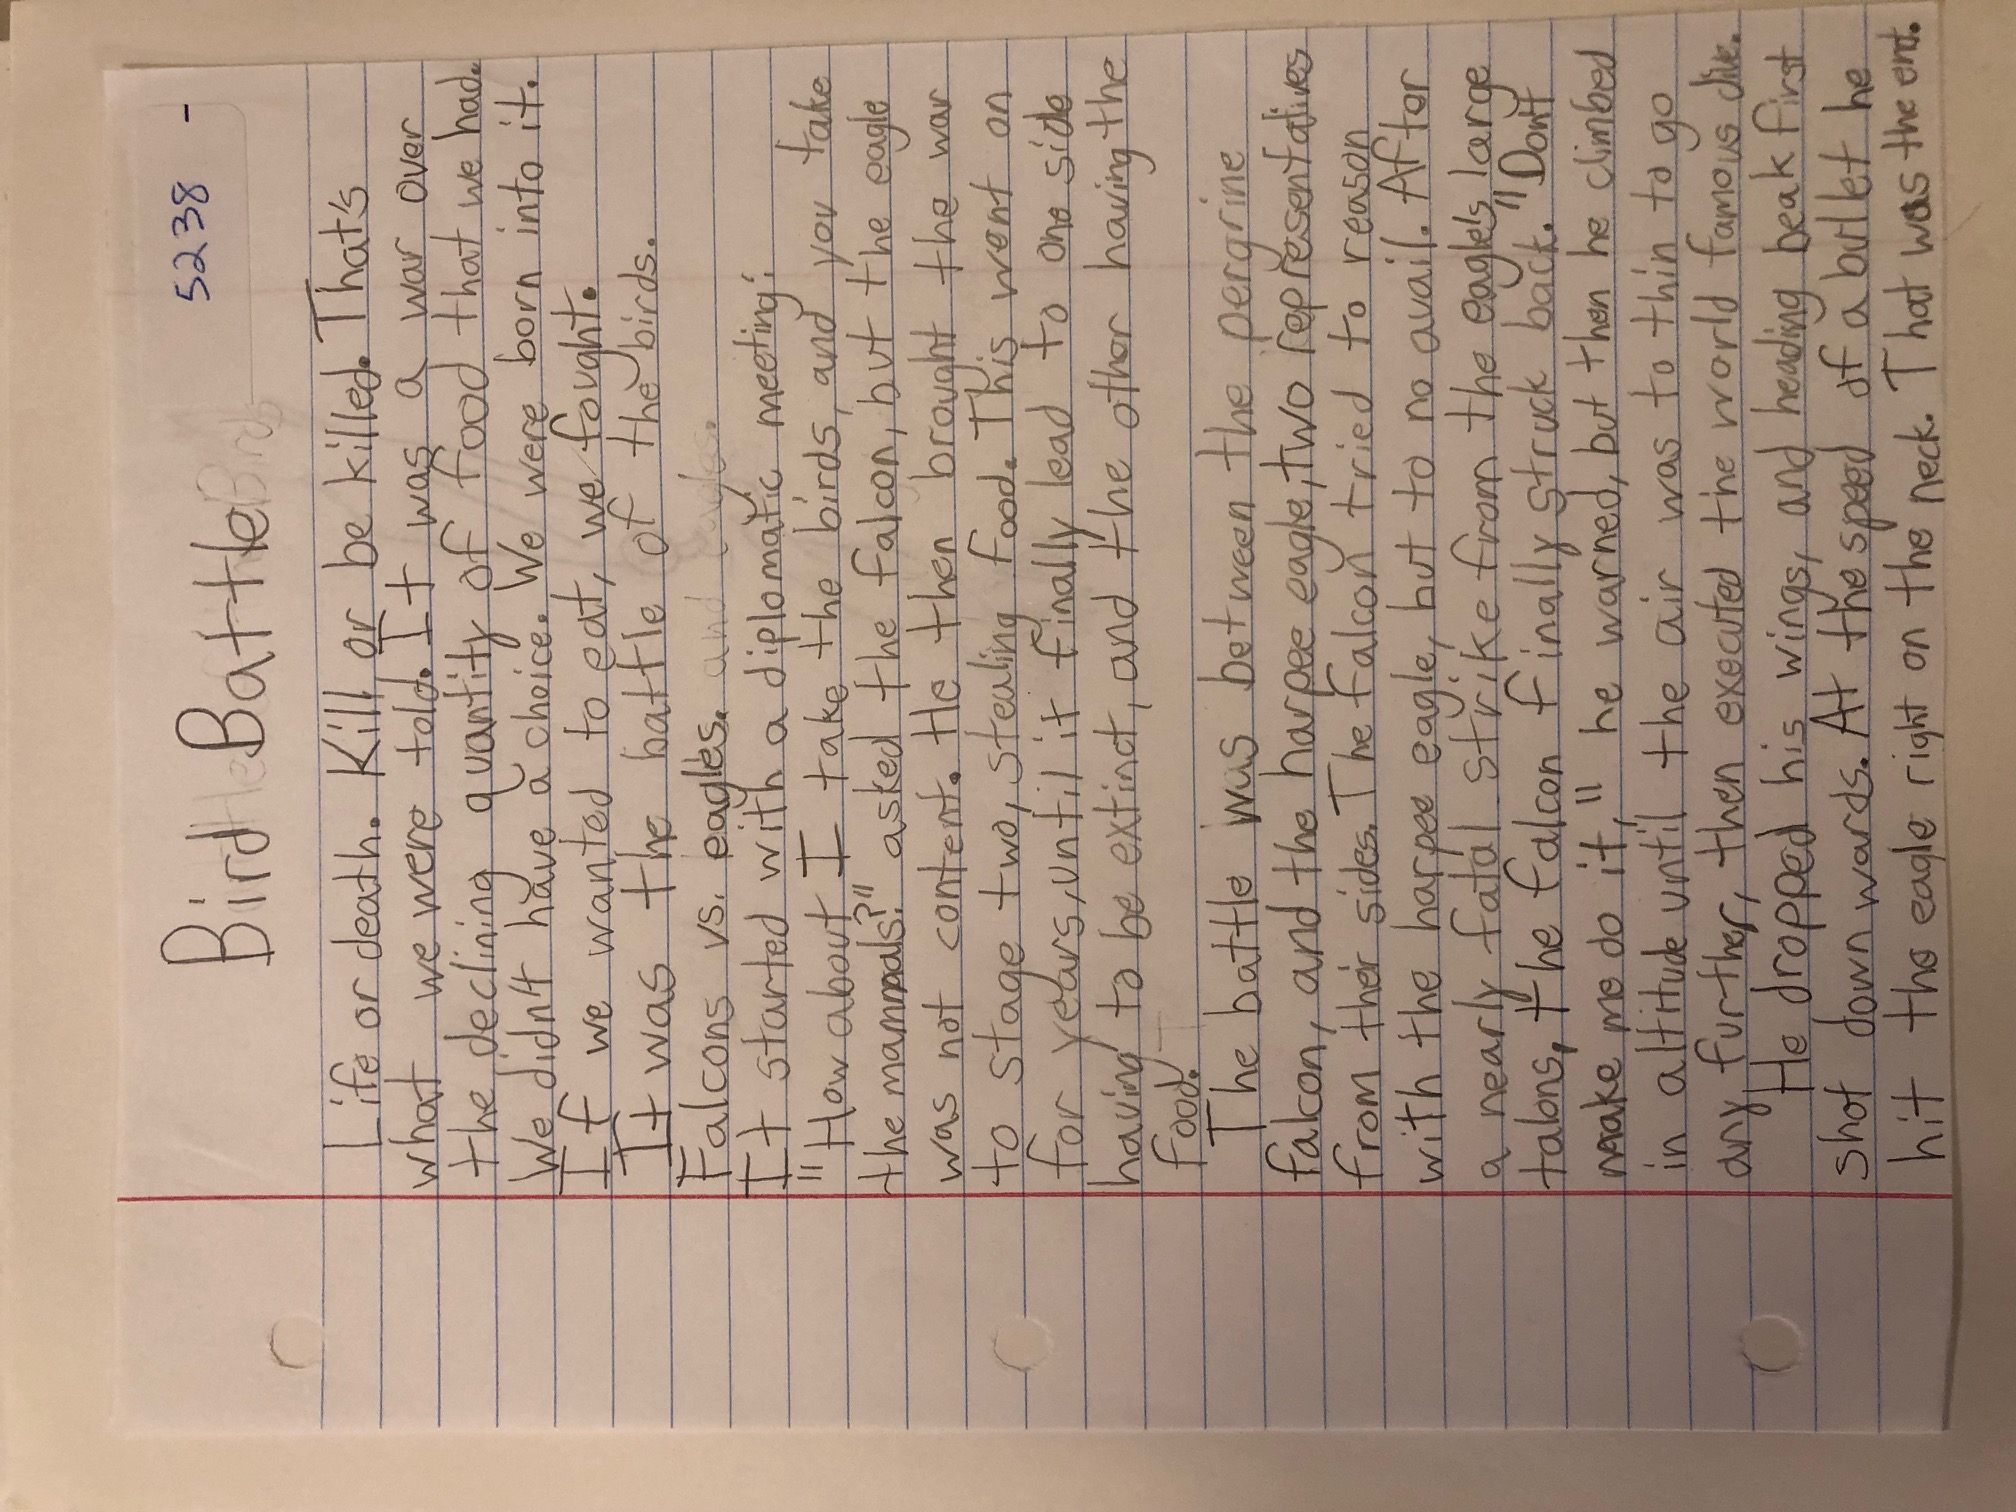 5238 -
Bird Battle
Life or death. Kill or be killed. That's
what we were told. It was a war over
the declining quantity of food that we had.
We didn't have a choice. We were born into it.
If we wanted to eat, we fought.
It was the battle of the birds.
Falcons vs. eagles. and eagles.
It started with a diplomatic meeting:
"How about I take the birds, and you take
the mammals?" asked the falcon, but the eagle
was not content. He then brought the war
to stage two, stealing food. This went on
for years, until it finally lead to one side
having to be extinct, and the other having the
food.
The battle was between the pergrine
falcon, and the harpee eagle, two representatives
from their sides. The falcon tried to reason
with the harpee eagle, but to no avail. After
a nearly fatal strike from the eagle's large
talons, the falcon finally struck back. "Don't
make me do it," he warned, but then he climbed
in altitude until the air was to thin to go
any further, then executed the world famous dive.
He dropped his wings, and heading beak first
shot down wards. At the speed of a bullet he
hit the eagle right on the neck. That was the end.